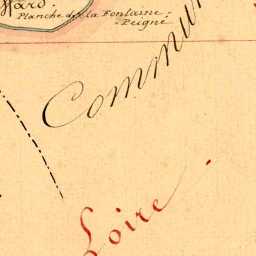 Planche de la Fontaine
Peigné
Commun
Loire.